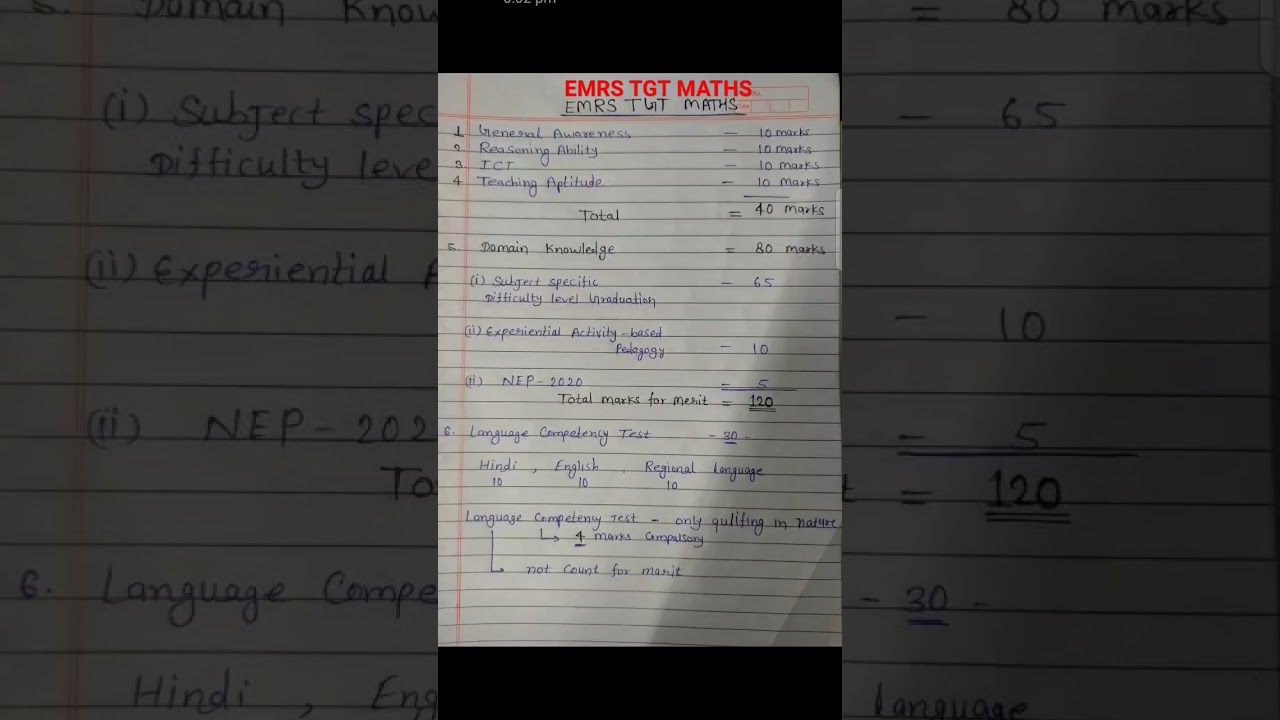 EMRS TGT MATHS
EMRS TGT MATHS
1. General Awareness — 10 marks
2. Reasoning Ability — 10 marks
3. ICT — 10 marks
4. Teaching Aptitude — 10 marks
Total = 40 marks
5. Domain Knowledge = 80 marks
(i) Subject specific — 65
Difficulty level Graduation
(ii) Experiential Activity-based
Pedagogy — 10
(ii) NEP-2020 — 5
Total marks for merit = 120
6. Language Competency Test - 30 -
Hindi , English , Regional Language
10 10 10
Language Competency Test - only qulifing in nature
↳ 4 marks Compalsory
↳ not Count for marit